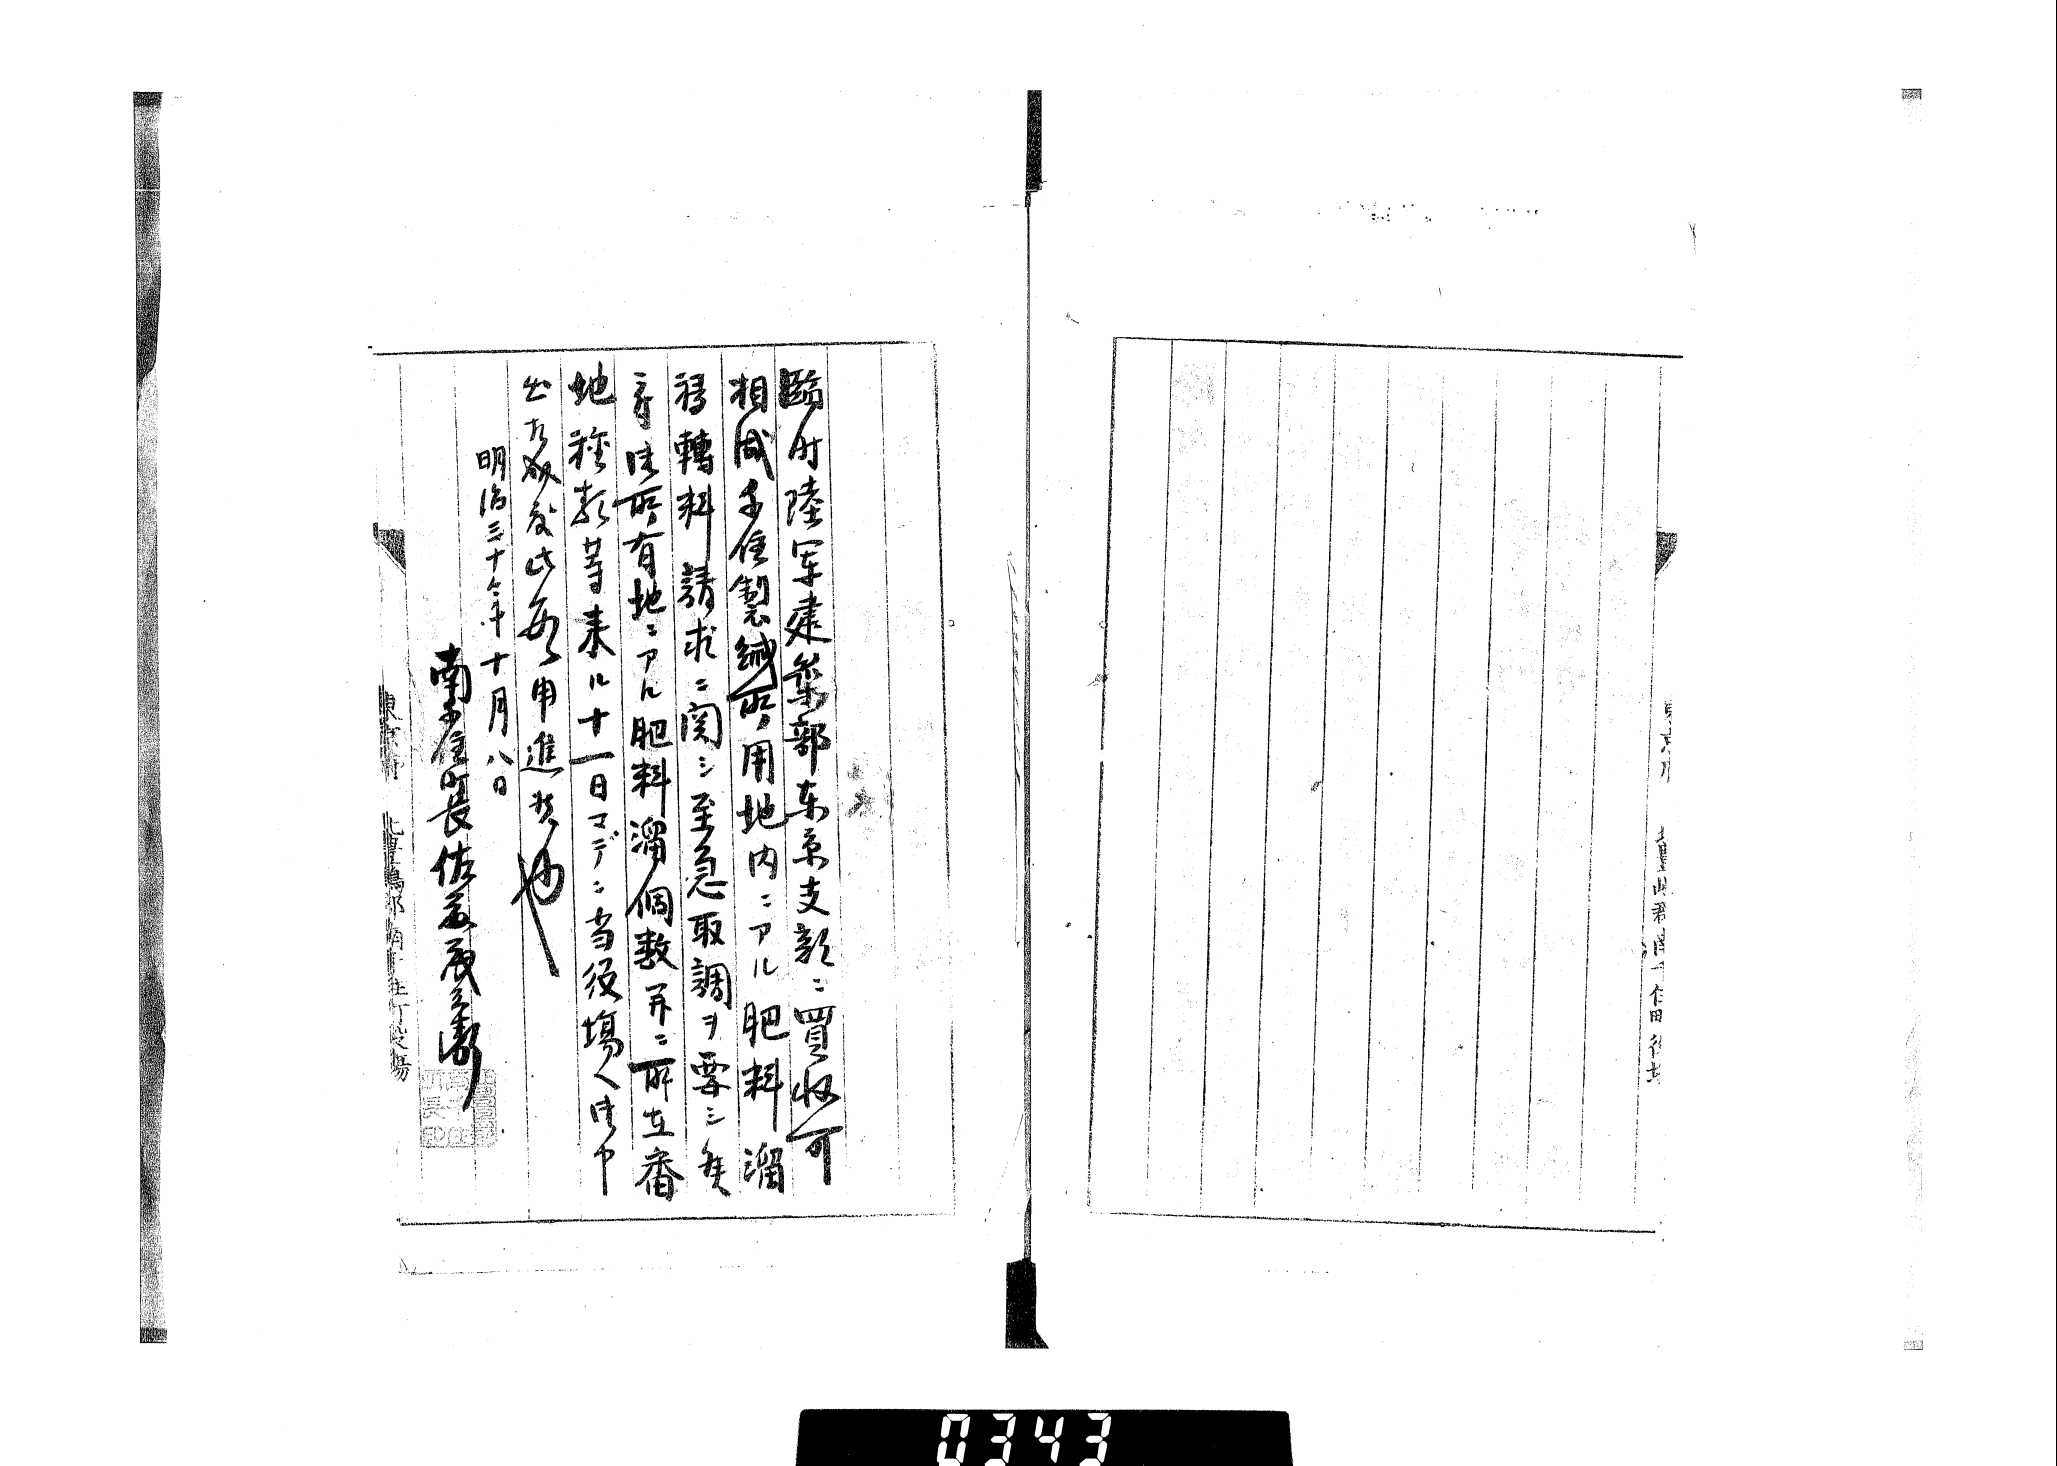 臨時陸軍建築部東京支部ニ買収可
相成千住製絨所用地内ニアル肥料溜
移轉料請求ニ関シ至急取調ヲ要シ候
ニ付所有地ニアル肥料溜個数并ニ所在番
地種類等来ル十一日マデニ当役場ヘ御申
出相成度此段申進候也
明治三十 年十月八日
南千住町長佐
東京府 北豊島郡南千住町役場
0343